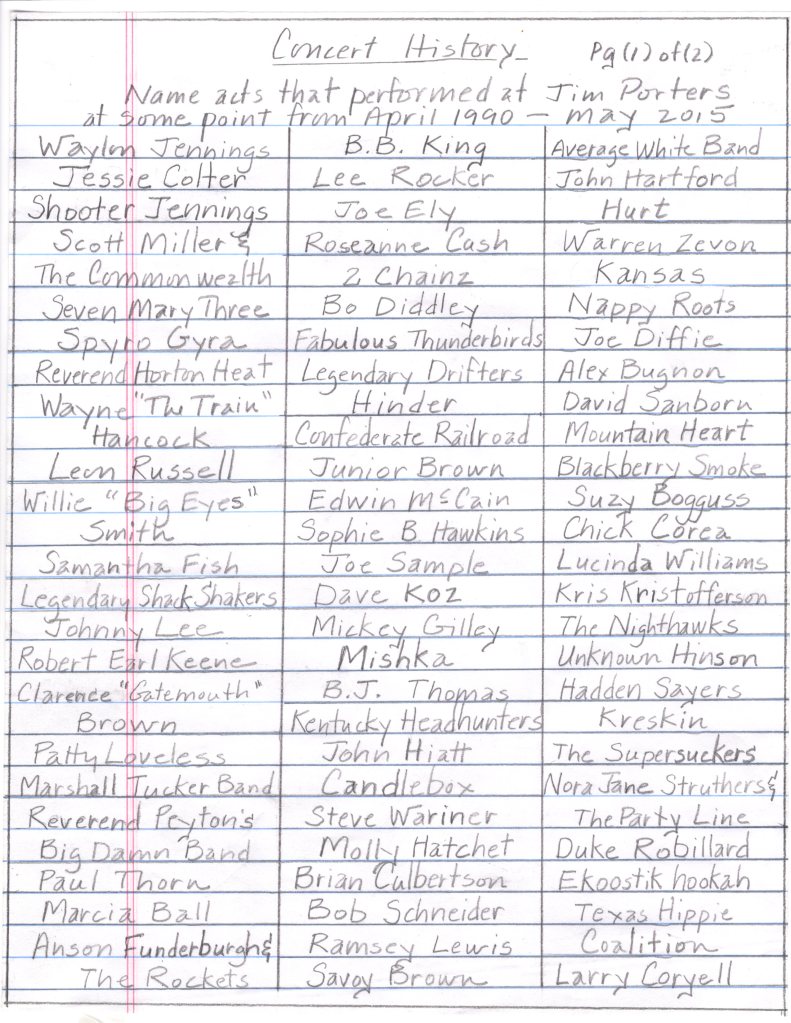 Concert History
Pg (1) of (2)
Name acts that performed at Jim Porters
at some point from April 1990 - May 2015
Waylon Jennings
Jessie Colter
Shooter Jennings
Scott Miller &
The Commonwealth
Seven Mary Three
Spyro Gyra
Reverend Horton Heat
Wayne "The Train"
Hancock
Leon Russell
Willie "Big Eyes"
Smith
Samantha Fish
Legendary Shack Shakers
Johnny Lee
Robert Earl Keene
Clarence "Gatemouth"
Brown
Patty Loveless
Marshall Tucker Band
Reverend Peyton's
Big Damn Band
Paul Thorn
Marcia Ball
Anson Funderburgh &
The Rockets
B.B. King
Lee Rocker
Joe Ely
Roseanne Cash
2 Chainz
Bo Diddley
Fabulous Thunderbirds
Legendary Drifters
Hinder
Confederate Railroad
Junior Brown
Edwin McCain
Sophie B Hawkins
Joe Sample
Dave Koz
Mickey Gilley
Mishka
B.J. Thomas
Kentucky Headhunters
John Hiatt
Candlebox
Steve Wariner
Molly Hatchet
Brian Culbertson
Bob Schneider
Ramsey Lewis
Savoy Brown
Average White Band
John Hartford
Hurt
Warren Zevon
Kansas
Nappy Roots
Joe Diffie
Alex Bugnon
David Sanborn
Mountain Heart
Blackberry Smoke
Suzy Bogguss
Chick Corea
Lucinda Williams
Kris Kristofferson
The Nighthawks
Unknown Hinson
Hadden Sayers
Kreskin
The Supersuckers
Nora Jane Struthers &
The Party Line
Duke Robillard
Ekoostik hookah
Texas Hippie
Coalition
Larry Coryell